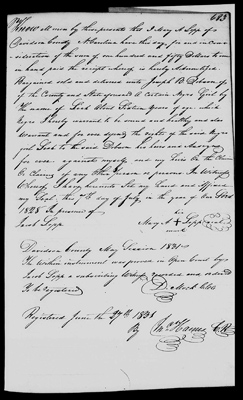 683
Know all men by these presents that I Mary A Lopp of
Davidson County N Carolina have this day, for and in Con=
=sideration of the sum of one hundred and fifty dollars to me
in hand paid the receipt whereof is hereby acknowledged
Bargained sold and delivered unto Joseph B
of the County and State aforesaid a Certain Negro Girl by
the name of Leah About years of age which
Negro I hereby warrant to be sound and healthy and also
Warrant and for ever defend the right of the said Negro
girl Leah to the said his heirs and Assigns
for ever against myself and my heirs Or the Claim
Or Claims of any Other person or persons In Witness
Whereof I have hereunto Set my hand and Affixed
my Seal, this 7th of July, in the year of Our Lord
1828 In presence of
Jacob Lopp
her
Mary A X Lopp
mark
Davidson County May Session 1831
The Within instrument was proved in Open Court by
Jacob Lopp a subscribing Witness recorded and ordered
To be registered
D. Mock Clk
Registered June the 27th 1831
By Jno Haines